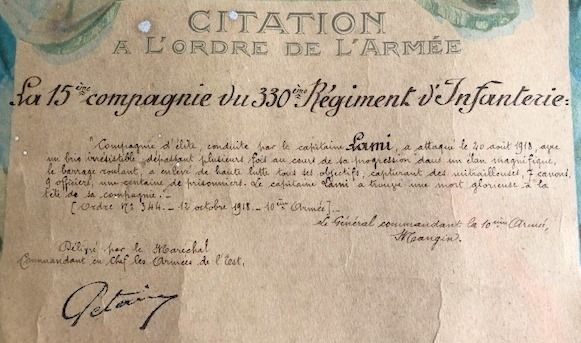 CITATION
A L'ORDRE DE L'ARMÉE
La 15ème compagnie du 330ème Régiment d'Infanterie:
"Compagnie d'élite, conduite par le capitaine Lami, a attaqué le 20 août 1918, avec
un brio irrésistible, dépassant plusieurs fois au cours de sa progression dans un élan magnifique,
le barrage roulant, a enlevé de haute lutte tous ses objectifs, capturant des mitrailleuses, 7 canons,
9 officiers, une centaine de prisonniers. Le capitaine Lami a trouvé une mort glorieuse à la
tête de sa compagnie."
[Ordre N° 344 _ 12 octobre 1918 _ 10ème Armée] _
Le Général commandant la 10ème Armée,
Mangin.
par le Maréchal
Commandant en Chef les Armées de l'Est,
Petain